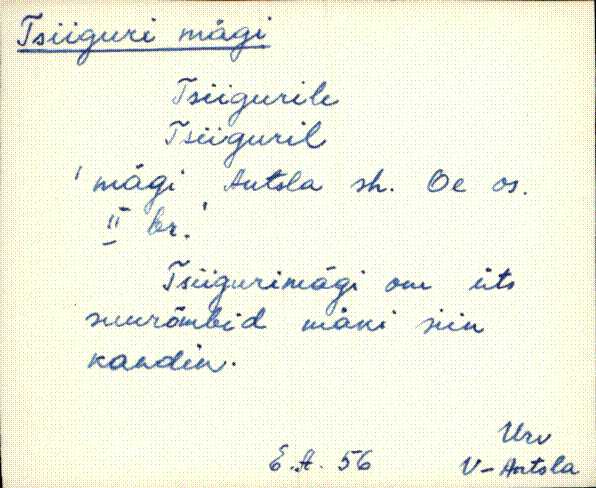 Tsiiguri mägi
Tsiigurile
Tsiiguril
'mägi Antsla sh. Oe os.
II br.'
Tsiigurimägi om üts
suurõmbid mäki siin
kandin.
E.A. 56
Urv
V-Antsla